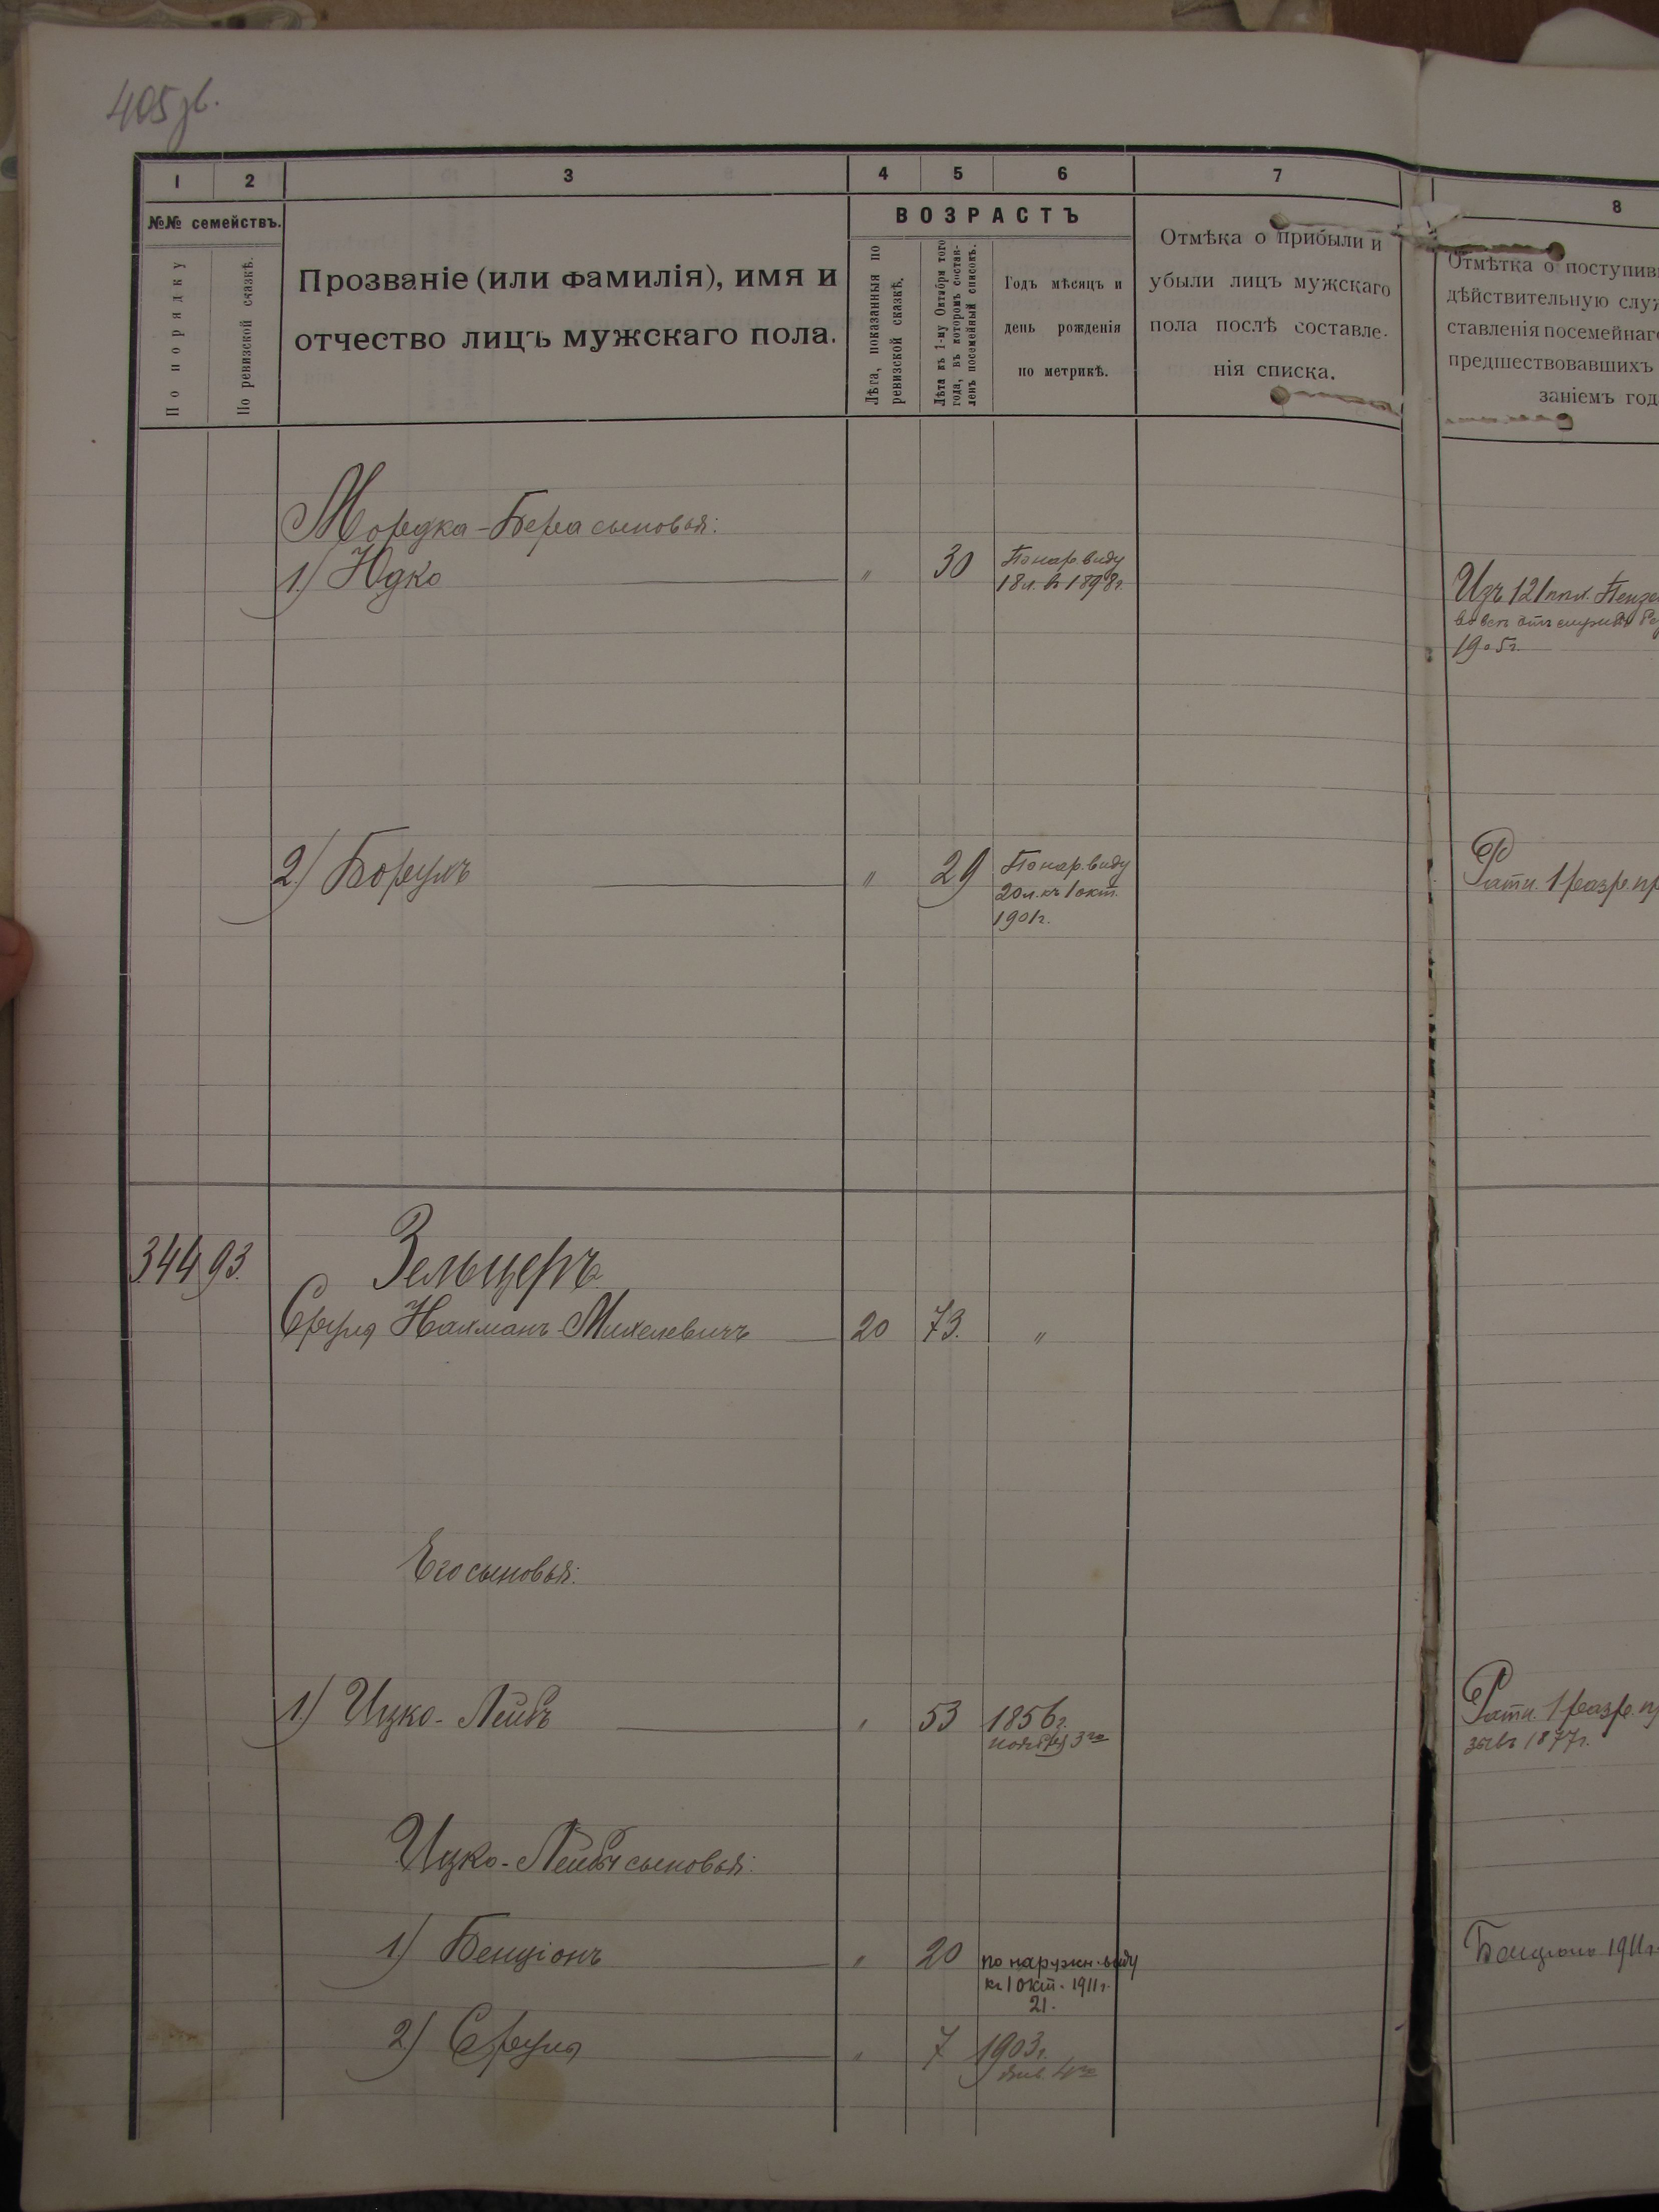 405 зв.
1 2 3 4 5 6 7 8
№№ семействъ.
По порядку
По ревизской сказкѣ.
Прозваніе (или фамилія), имя и
отчество лицъ мужскаго пола.
ВОЗРАСТЪ
Лѣта, показанныя по
ревизской сказкѣ.
Лѣта къ 1-му Октября того
года, въ которомъ состав-
ленъ посемейный списокъ.
Годъ мѣсяцъ и
день рожденія
по метрикѣ.
Отмѣка о прибыли и
убыли лицъ мужскаго
пола послѣ составле-
нія списка.
Отмѣтка о поступив
дѣйствительную служ
ставленія посемейнаго
предшествовавшихъ
заніемъ год
Мордка-Бера сыновья:
1.) Юдко " 30 По нар. виду
18 л. в 1898 г.
Изъ 121 пѣх. Пензе
1905 г.
2.) Борухъ " 29 По нар. виду
20 л. къ 1 окт.
1901 г.
Ратн. 1 разр. пр
344 93. Зельцеръ
Сруля Нахманъ Михелевичъ 20 73. "
Его сыновья:
1.) Ицко-Лейбъ " 53 1856 г.
ноября 3го
Ратн. 1 разр. пр
зывъ 1877 г.
Ицко-Лейбы сыновья:
1) Бенціонъ " 20 по наружн. виду
къ 1 окт. 1911 г.
21.
Бенціонъ 1911 г.
2) Сруля " 7 1903 г.